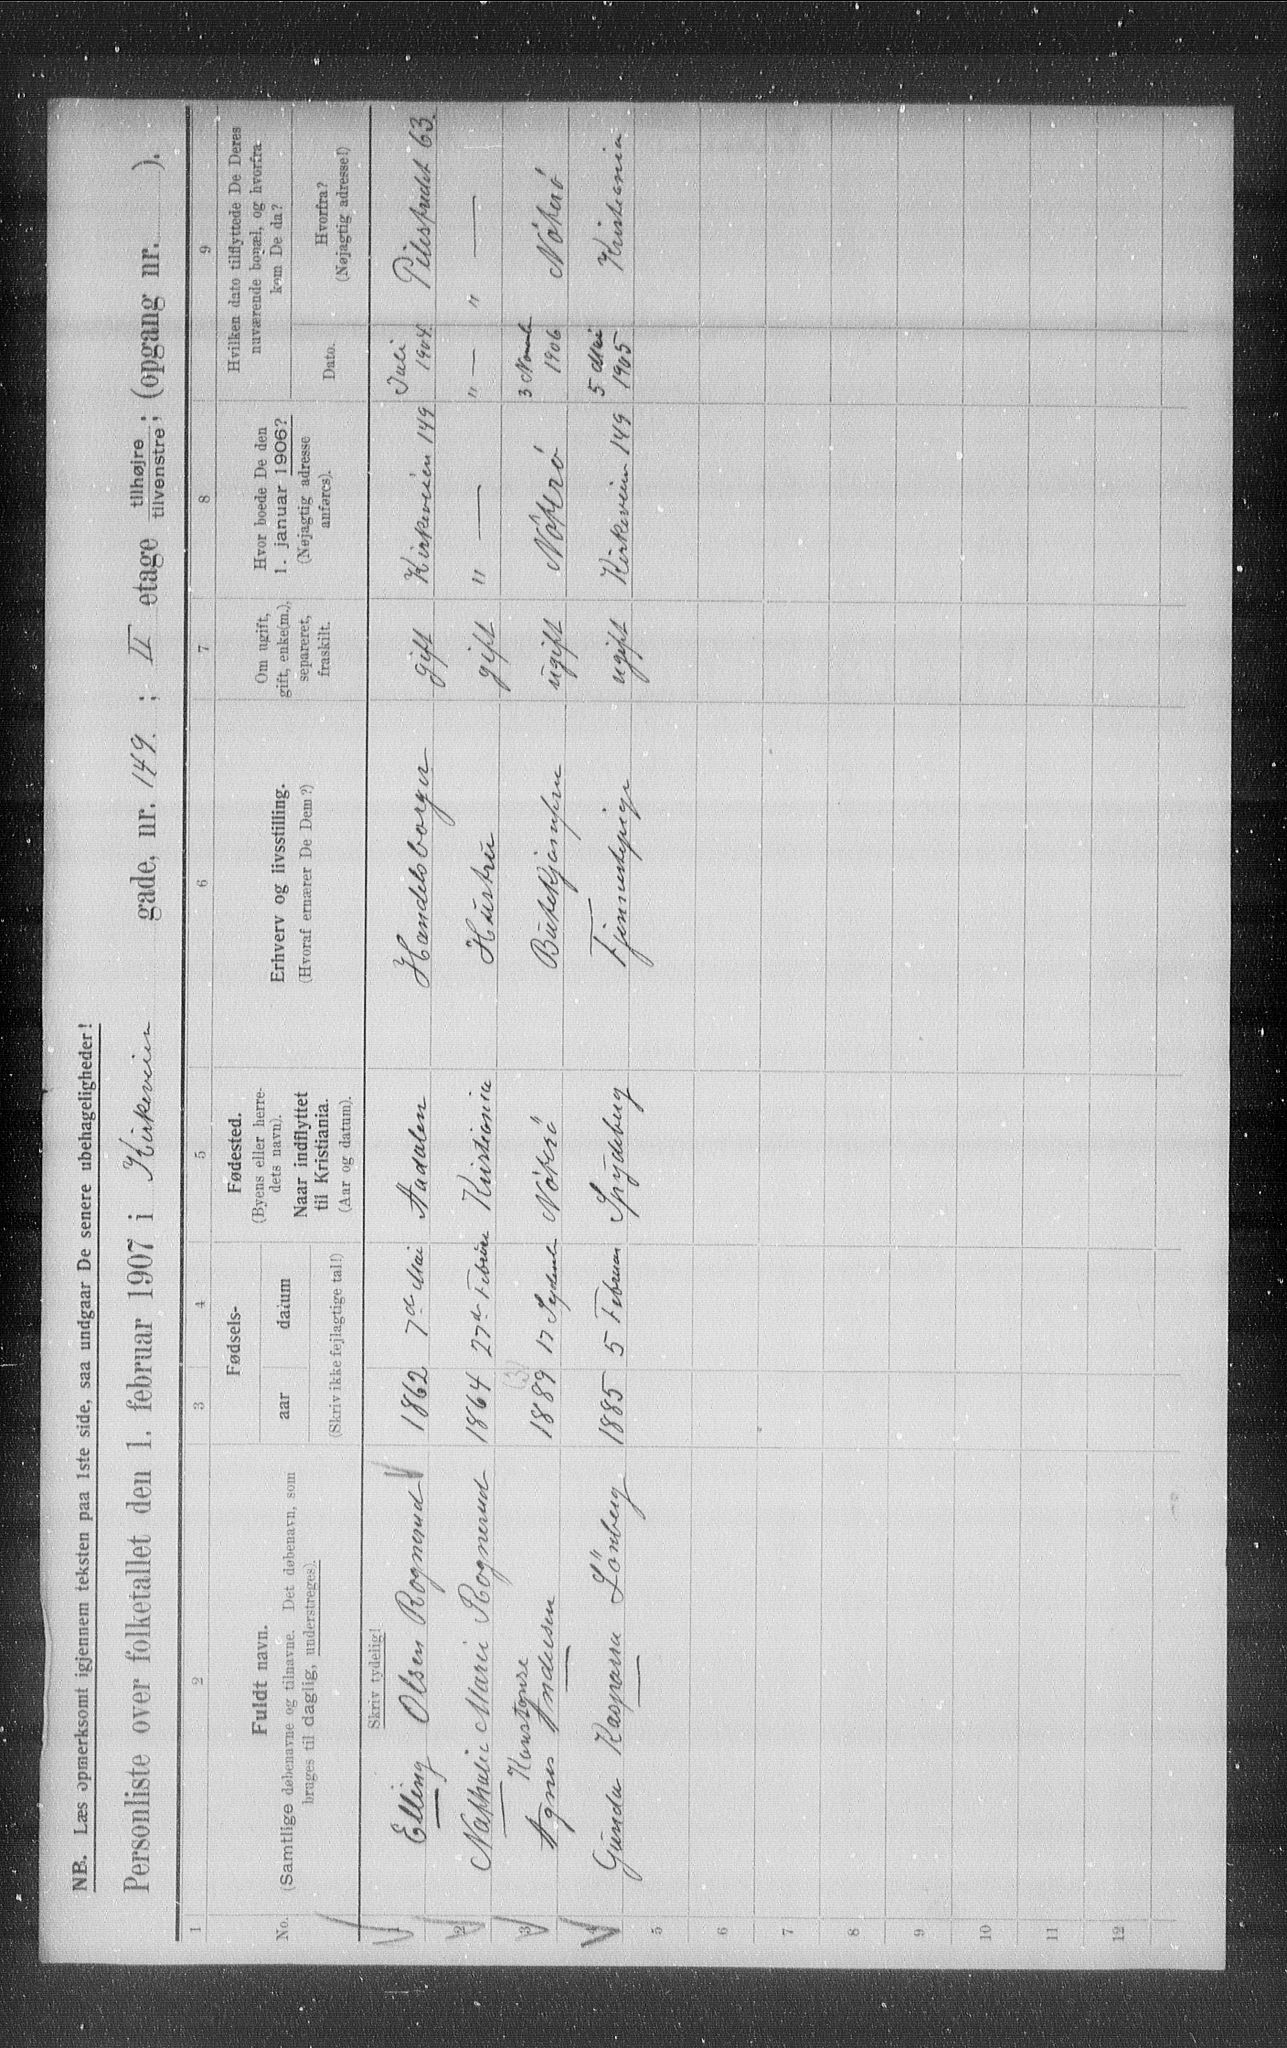 NB. Læs opmerksomt igjennem teksten paa 1ste side, saa undgaar De senere ubehageligheder!
Personliste over folketallet den 1. februar 1907 i Kirkeveien gade, nr. 149. ; II etage tilhøjre tilvenstre; (opgang nr. ).
1 2 3 4 5 6 7 8 9
No.
Fuldt navn.
(Samtlige døbenavne og tilnavne. Det døbenavn, som
bruges til daglig, understreges).
Fødsels-
aar datum
(Skriv ikke fejlagtige tal!)
Fødested.
(Byens eller herre-
dets navn).
Naar indflyttet
til Kristiania.
(Aar og datum).
Erhverv og livsstilling.
(Hvoraf ernærer De Dem?)
Om ugift,
gift, enke(m.),
separeret,
fraskilt.
Hvor boede De den
1. januar 1906?
(Nøjagtig adresse
anføres).
Hvilken dato tilflyttede De Deres
nuværende bopæl, og hvorfra
kom De da?
Dato.
Hvorfra?
(Nøjagtig adresse!)
Skriv tydelig!
1 Elling Olsen Rognerud 1862 7d Mai Aadalen Handelsborger gift Kirkeveien 149 Juli 1904 Pilestrædet 63.
2 Nathalie Marie Rognerud 1864 27d Februar Kristiania Hustru gift " — " — " —
3 Agnes Konstanse Andersen 1889 (3) 17 Septembr Nöterö ugift Nöterö 3 Novemb 1906 Nöterö
4 Gunda Kaspara Lönberg 1885 5 Februar Spydeberg Tjenestepige ugift Kirkeveien 149 5 Mai 1905 Kristiania
5
6
7
8
9
10
11
12